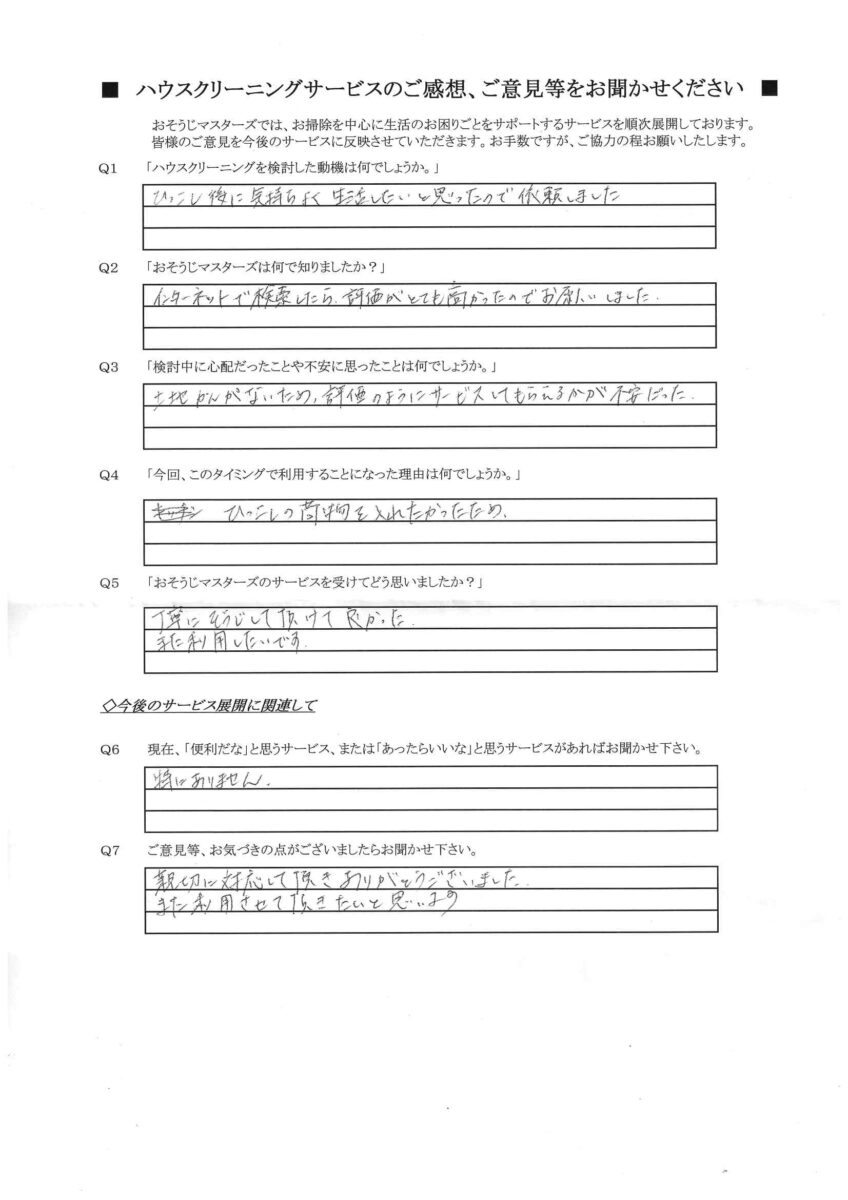 ■ ハウスクリーニングサービスのご感想、ご意見等をお聞かせください ■
おそうじマスターズでは、お掃除を中心に生活のお困りごとをサポートするサービスを順次展開しております。
皆様のご意見を今後のサービスに反映させていただきます。お手数ですが、ご協力の程お願いしたします。
Q1 「ハウスクリーニングを検討した動機は何でしょうか。」
ひっこし後に気持ちよく生活したいと思ったので依頼しました
Q2 「おそうじマスターズは何で知りましたか？」
インターネットで検索したら、評価がとても高かったのでお願いしました.
Q3 「検討中に心配だったことや不安に思ったことは何でしょうか。」
土地かんがないため,評価のようにサービスしてもらえるかが不安だった.
Q4 「今回、このタイミングで利用することになった理由は何でしょうか。」
ひっこしの荷物を入れたかったため、
Q5 「おそうじマスターズのサービスを受けてどう思いましたか？」
丁寧にそうじして頂けて良かった.
また利用したいです.
◇今後のサービス展開に関連して
Q6 現在、「便利だな」と思うサービス、または「あったらいいな」と思うサービスがあればお聞かせ下さい。
特にありません.
Q7 ご意見等、お気づきの点がございましたらお聞かせ下さい。
親切に対応して頂きありがとうございました.
また利用させて頂きたいと思います